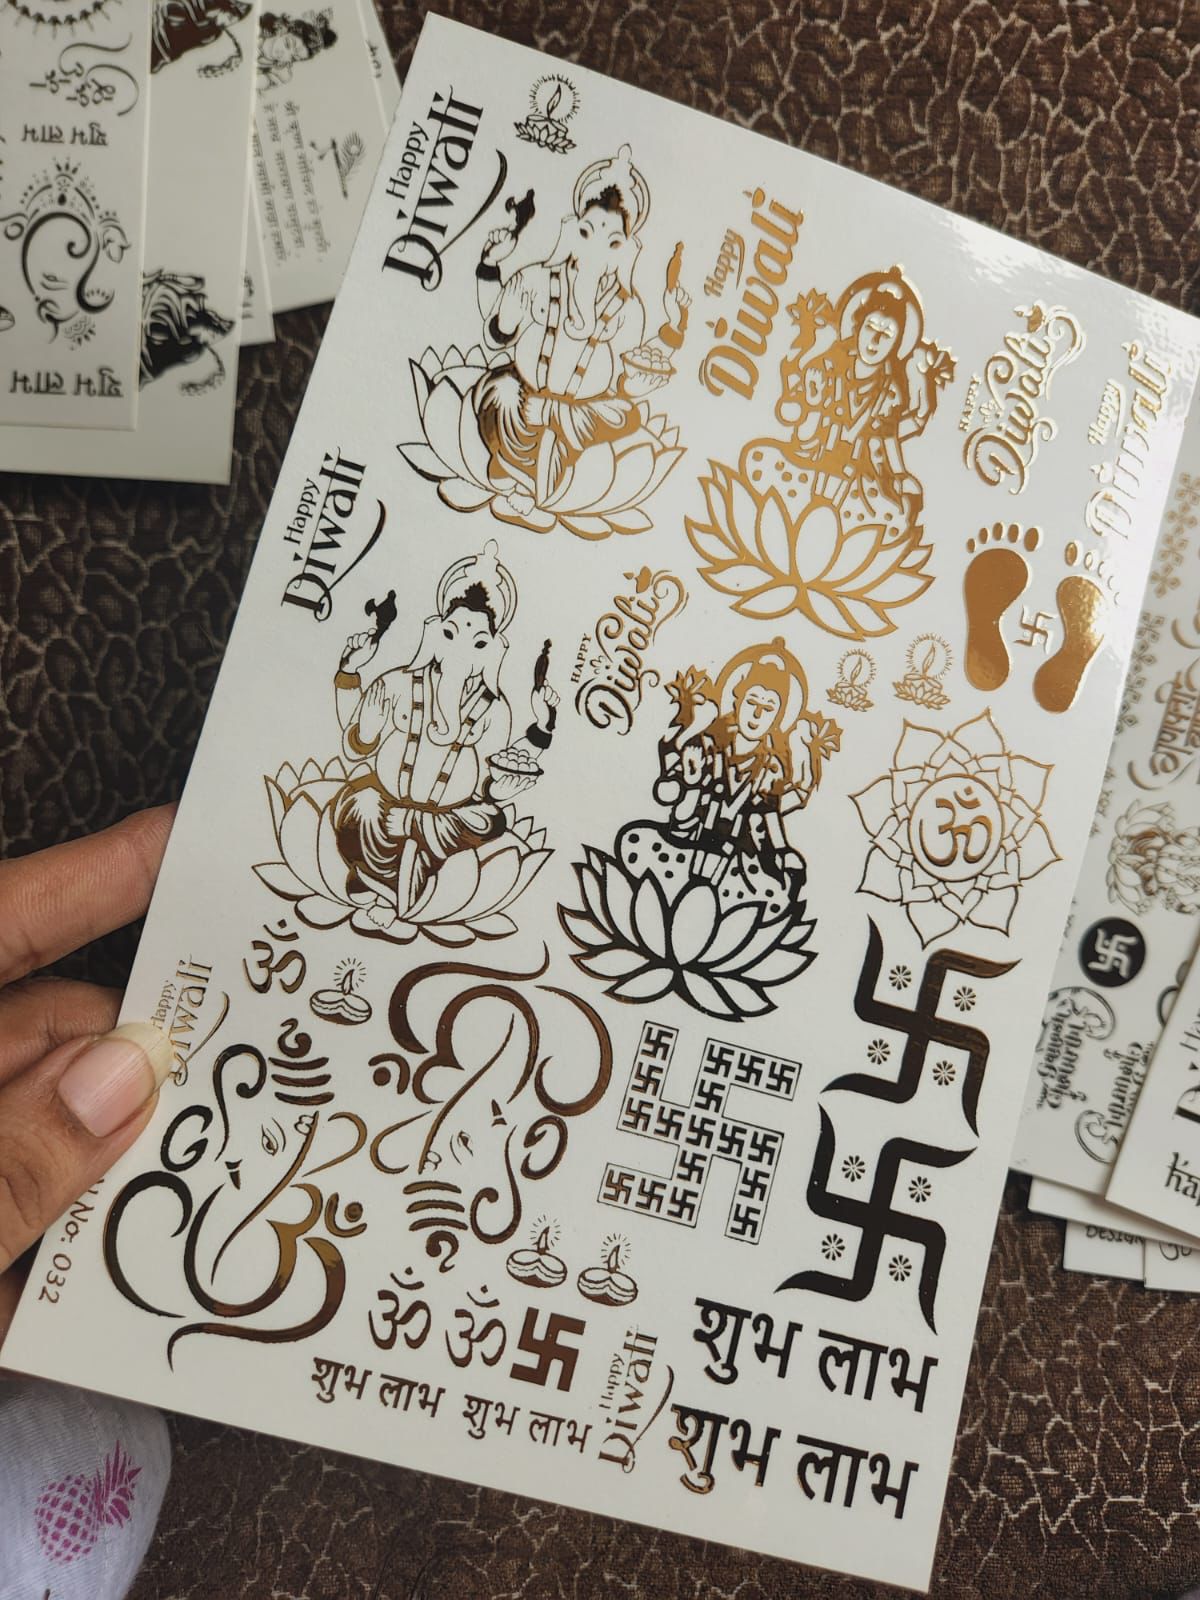 Happy
Diwali
Happy
Diwali
HAPPY
Diwali
Happy
Diwali
Happy
Diwali
HAPPY
Diwali
ॐ
ॐ
Happy
Diwali
ॐ ॐ
शुभ लाभ शुभ लाभ
Happy
Diwali
शुभ लाभ
शुभ लाभ
No: 032
शुभ लाभ
शुभ लाभ
Ganesh
Chaturthi
Chaturthi
DESIGN